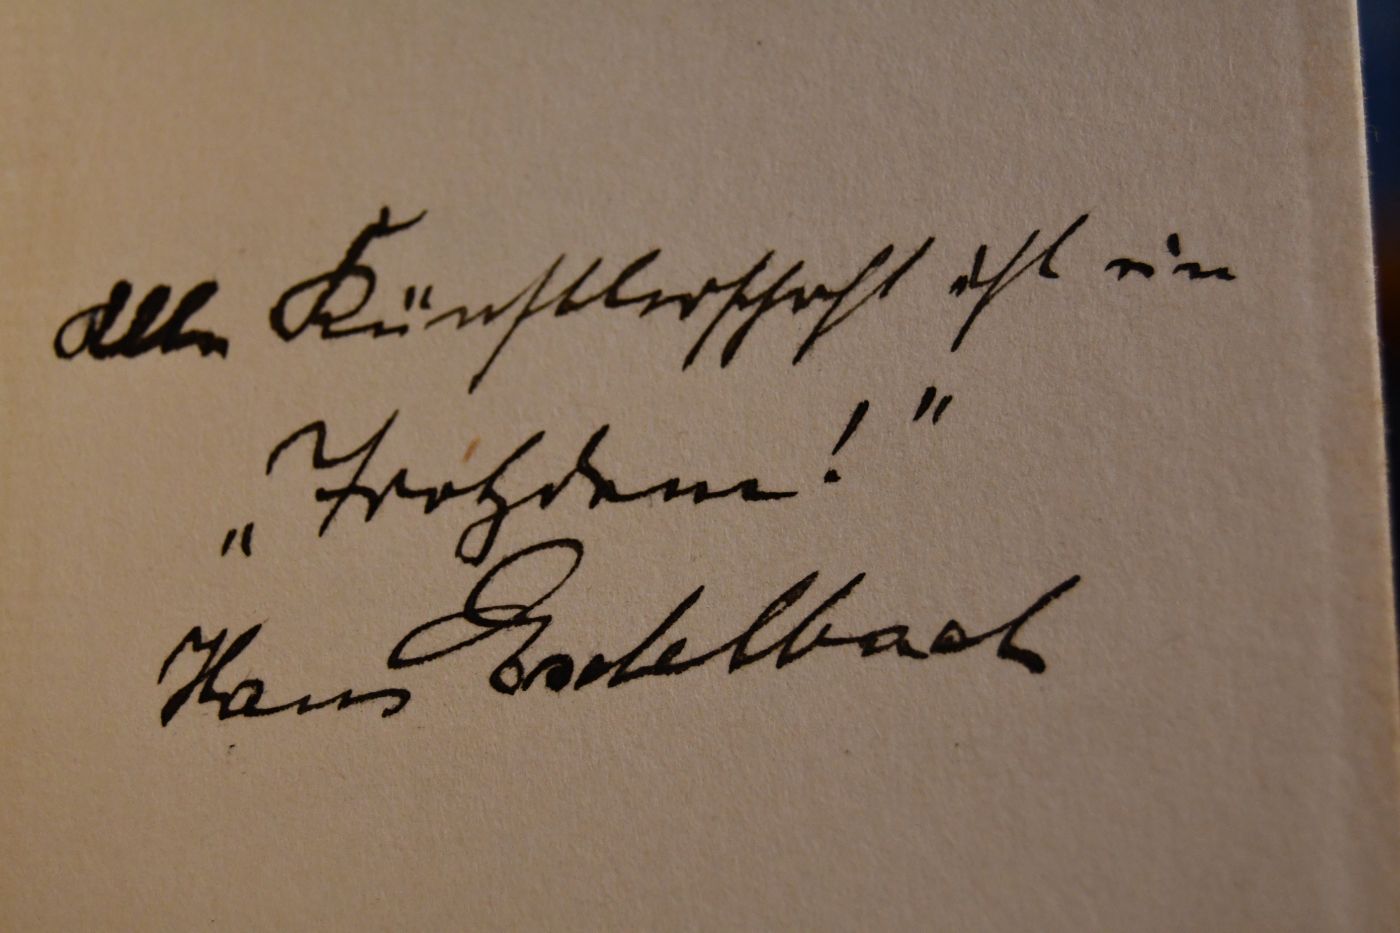 Alle Künstlerschaft ist ein
„Trotzdem!"
Hans Eschelbach